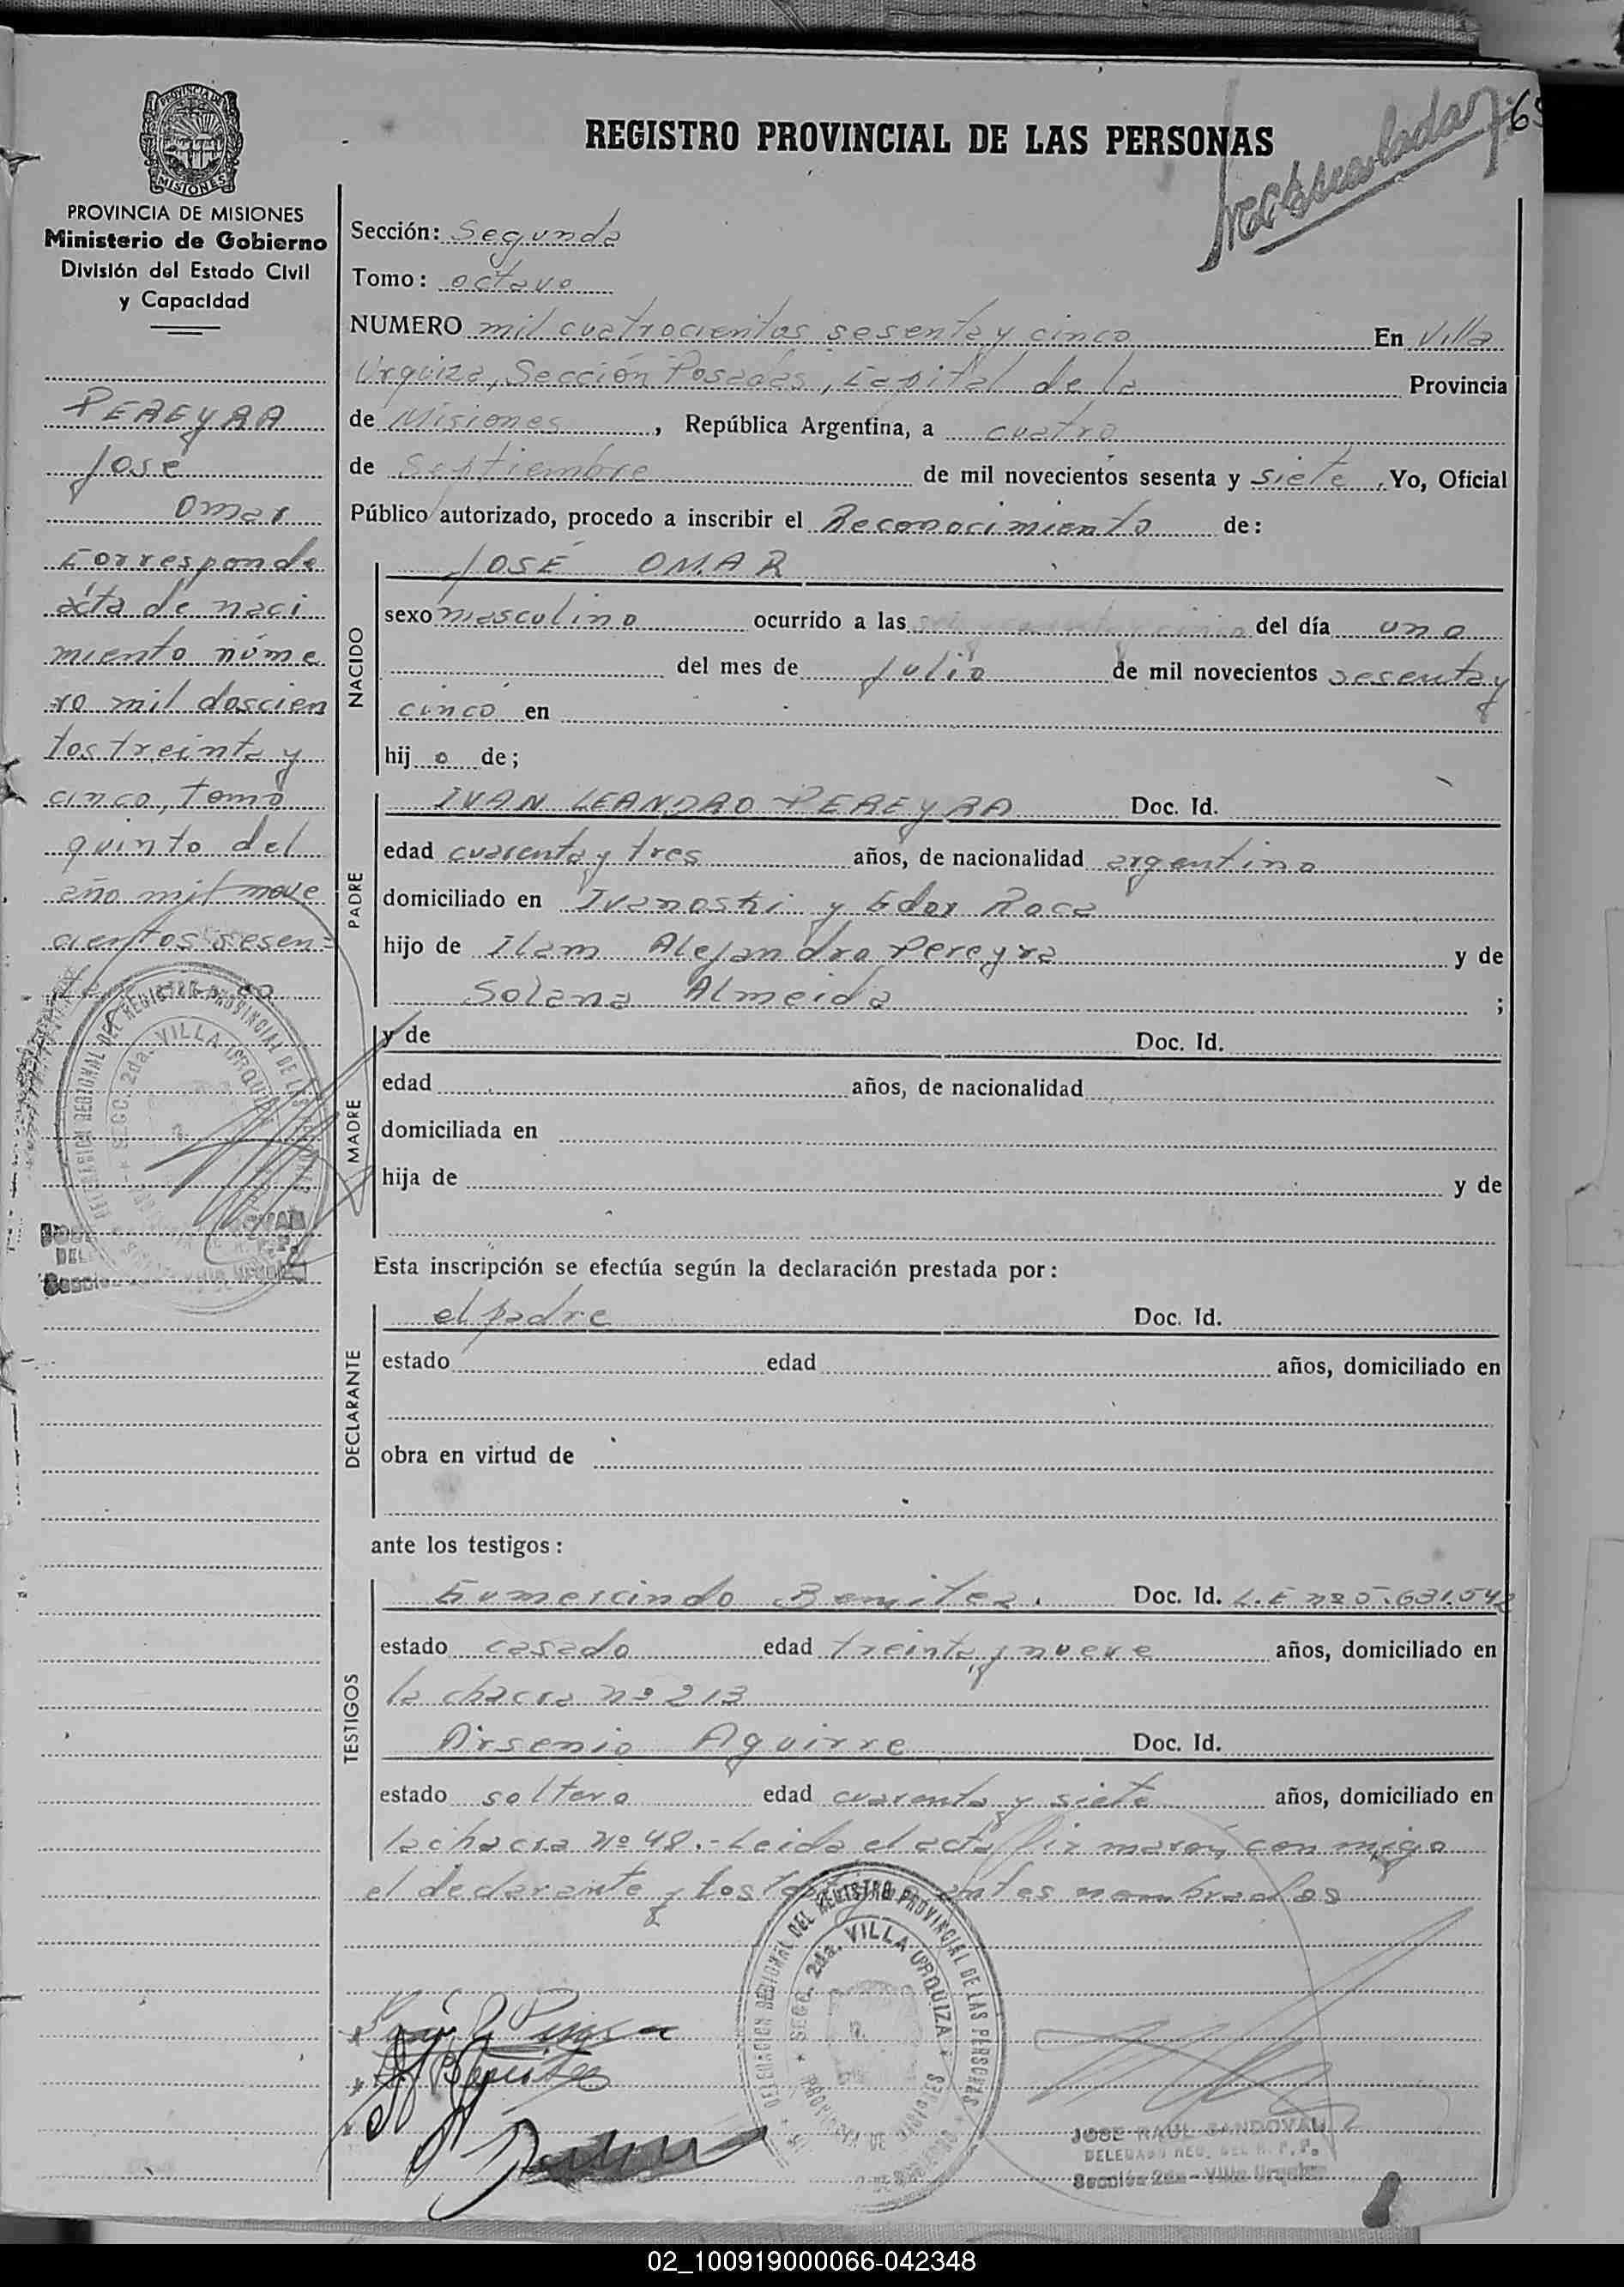 REGISTRO PROVINCIAL DE LAS PERSONAS
PROVINCIA DE MISIONES
Ministerio de Gobierno
División del Estado Civil
y Capacidad
PEREYRA
José
Omar
Corresponde
acta de naci
miento núme
ro mil doscien
tos treinta y
cinco, tomo
quinto del
año mil nove
cientos sesen=
Sección: Segunda
Tomo: octavo
NUMERO mil cuatrocientos sesenta y cinco En Villa
Urquiza, Sección Posadas, Capital de la Provincia
de Misiones, República Argentina, a cuatro
de Septiembre de mil novecientos sesenta y siete. Yo, Oficial
Público autorizado, procedo a inscribir el Reconocimiento de:
NACIDO
JOSÉ OMAR
sexo masculino ocurrido a las del día uno
del mes de julio de mil novecientos sesenta y
cinco en
hijo de;
PADRE
IVAN LEANDRO PEREYRA Doc. Id.
edad cuarenta y tres años, de nacionalidad argentino
domiciliado en Ivanoski y Edor Roca
hijo de Ilam Alejandro Pereyra y de
Solana Almeida ;
MADRE
y de Doc. Id.
edad años, de nacionalidad
domiciliada en
hija de y de
Esta inscripción se efectúa según la declaración prestada por:
DECLARANTE
el padre Doc. Id.
estado edad años, domiciliado en
obra en virtud de
ante los testigos:
TESTIGOS
Gumercindo Benitez. Doc. Id. L.E nº 5.631.542
estado casado edad treinta y nueve años, domiciliado en
la chacra nº 213
Arsenio Aguirre Doc. Id.
estado soltero edad cuarenta y siete años, domiciliado en
la chacra nº 48.- Leida el acta firmaron con migo
el declarante y los antes nombrados
DELEGACION REGIONAL DEL REGISTRO PROVINCIAL DE LAS PERSONAS
SECC. 2da. VILLA URQUIZA
PROVINCIA DE MISIONES
JOSE RAUL SANDOVAL
DELEGADO REG. DEL R. P. P.
Sección 2da - Villa Urquiza
02_100919000066-042348